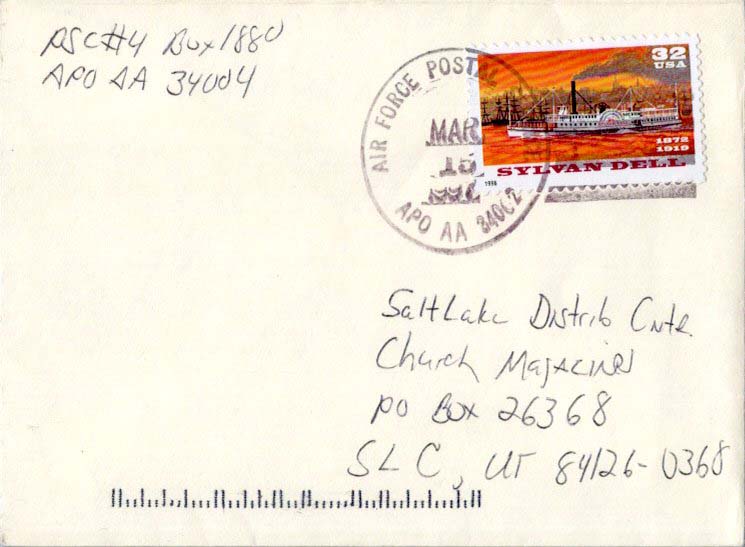 PSC#4 Box 1880
APO AA 34004
AIR FORCE POSTAL
MAR
15
APO AA 34002
32
USA
1872
1919
SYLVAN DELL
1996
Salt Lake Distrib Cntr
Church Magazines
PO Box 26368
SLC, UT 84126-0368